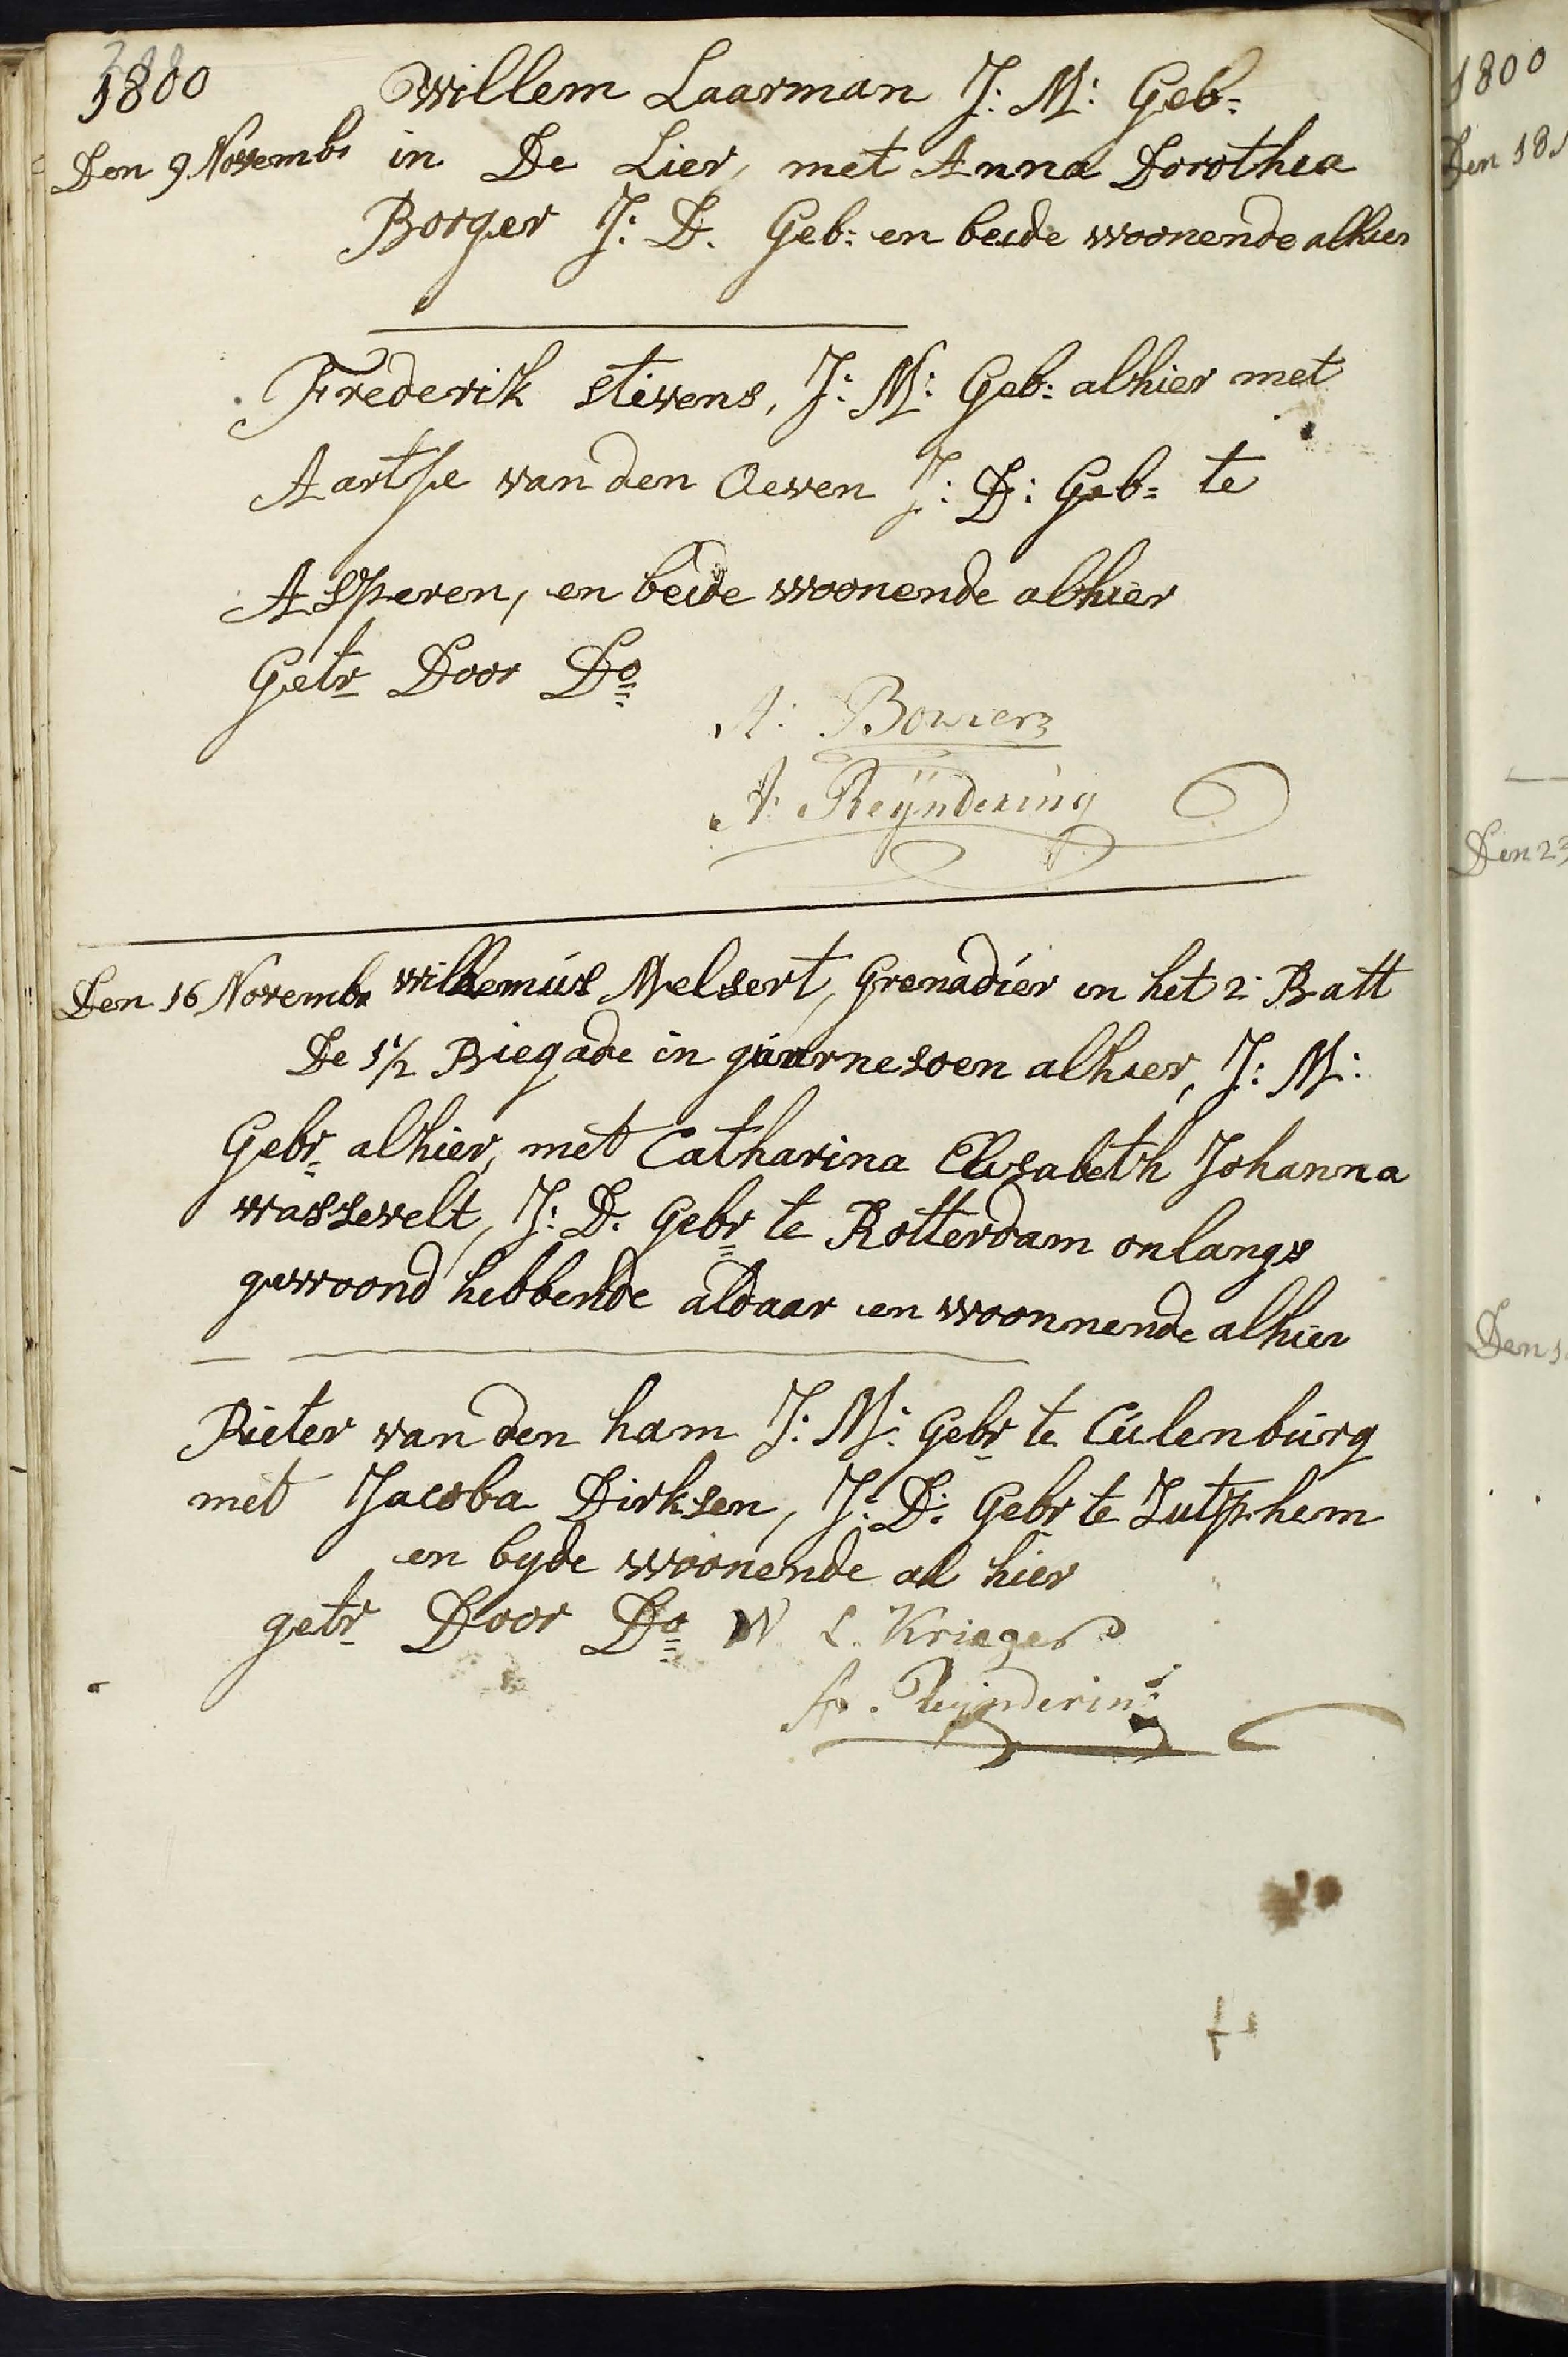 1800
Willem Laarman J: M: Geb=
Den 9 Novembr in De Lier, met Anna Dorothea
Borger J: D. Geb: en beide woonende alhier
Frederik Stivens, J: M: Geb: alhier met
Aartje van den Oeven J: D: Geb= te
Asperen, en beide woonende alhier
Getr Door Do
A: Bowierz
A. Reÿndering
Den 16 Novembr Willemus Melsert, Grenadier in het 2 Batt
De 1/2 Briegade in guarnesoen alhier, J: M:
Gebr alhier, met Catharina Elisabeth Johanna
wassevelt, J: D. Gebr te Rotterdam onlangs
gewoond hebbende aldaar en woonnende alhier
Pieter van den ham J: M: Gebr te Culenburg
met Jacoba Dirksen, J: D: Gebr te Zutphem
en byde woonende al hier
getr Door Do W L. Krieger
A. Reijndering
1800
Den 18
Den 23
Den